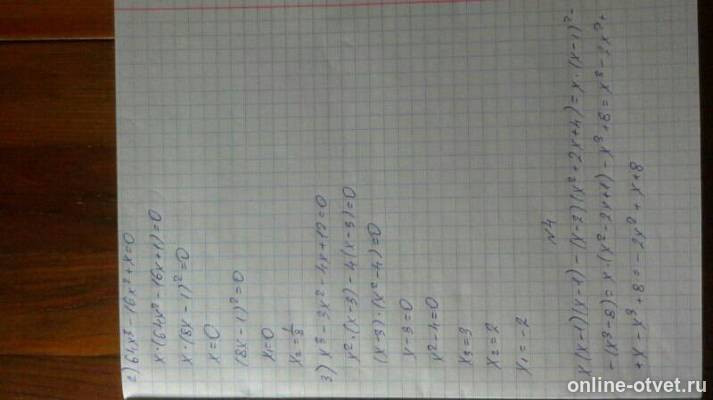 2) 64x³ - 16x² + x = 0
x·(64x² - 16x + 1) = 0
x·(8x - 1)² = 0
x = 0
(8x - 1)² = 0
x₁ = 0
x₂ = 1/8
3) x³ - 3x² - 4x + 12 = 0
x²·(x - 3) - 4(x - 3) = 0
(x - 3)·(x² - 4) = 0
x - 3 = 0
x² - 4 = 0
x₃ = 3
x₂ = 2
x₁ = -2
№4
x(x - 1)(x - 1) - (x - 2)(x² + 2x + 4) = x·(x - 1)² -
- (x³ - 8) = x·(x² - 2x + 1) - x³ + 8 = x³ - 2x² +
+ x - x³ + 8 = - 2x² + x + 8
online-otvet.ru